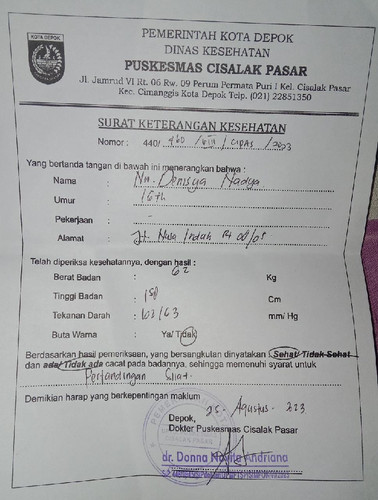 KOTA DEPOK
PEMERINTAH KOTA DEPOK
DINAS KESEHATAN
PUSKESMAS CISALAK PASAR
Jl. Jamrud VI Rt. 06 Rw. 09 Perum Permata Puri I Kel. Cisalak Pasar
Kec. Cimanggis Kota Depok Telp. (021) 22851350
SURAT KETERANGAN KESEHATAN
Nomor : 440/ 460 / VIII / CIPAS / 2023
Yang bertanda tangan di bawah ini menerangkan bahwa :
Nama : Nn. Denisya Nadya
Umur : 16 th
Pekerjaan : -
Alamat : Jl. Nusa Indah Rt
Telah diperiksa kesehatannya, dengan hasil :
Berat Badan : 62 Kg
Tinggi Badan : 158 Cm
Tekanan Darah : 103/63 mm/ Hg
Buta Warna : Ya/ Tidak
Berdasarkan hasil pemeriksaan, yang bersangkutan dinyatakan : Sehat/ Tidak Sehat
dan ada/ Tidak ada cacat pada badannya, sehingga memenuhi syarat untuk
Pertandingan Silat.
Demikian harap yang berkepentingan maklum
Depok, 25 - Agustus - 2023
Dokter Puskesmas Cisalak Pasar
dr. Donna Novita Andriana